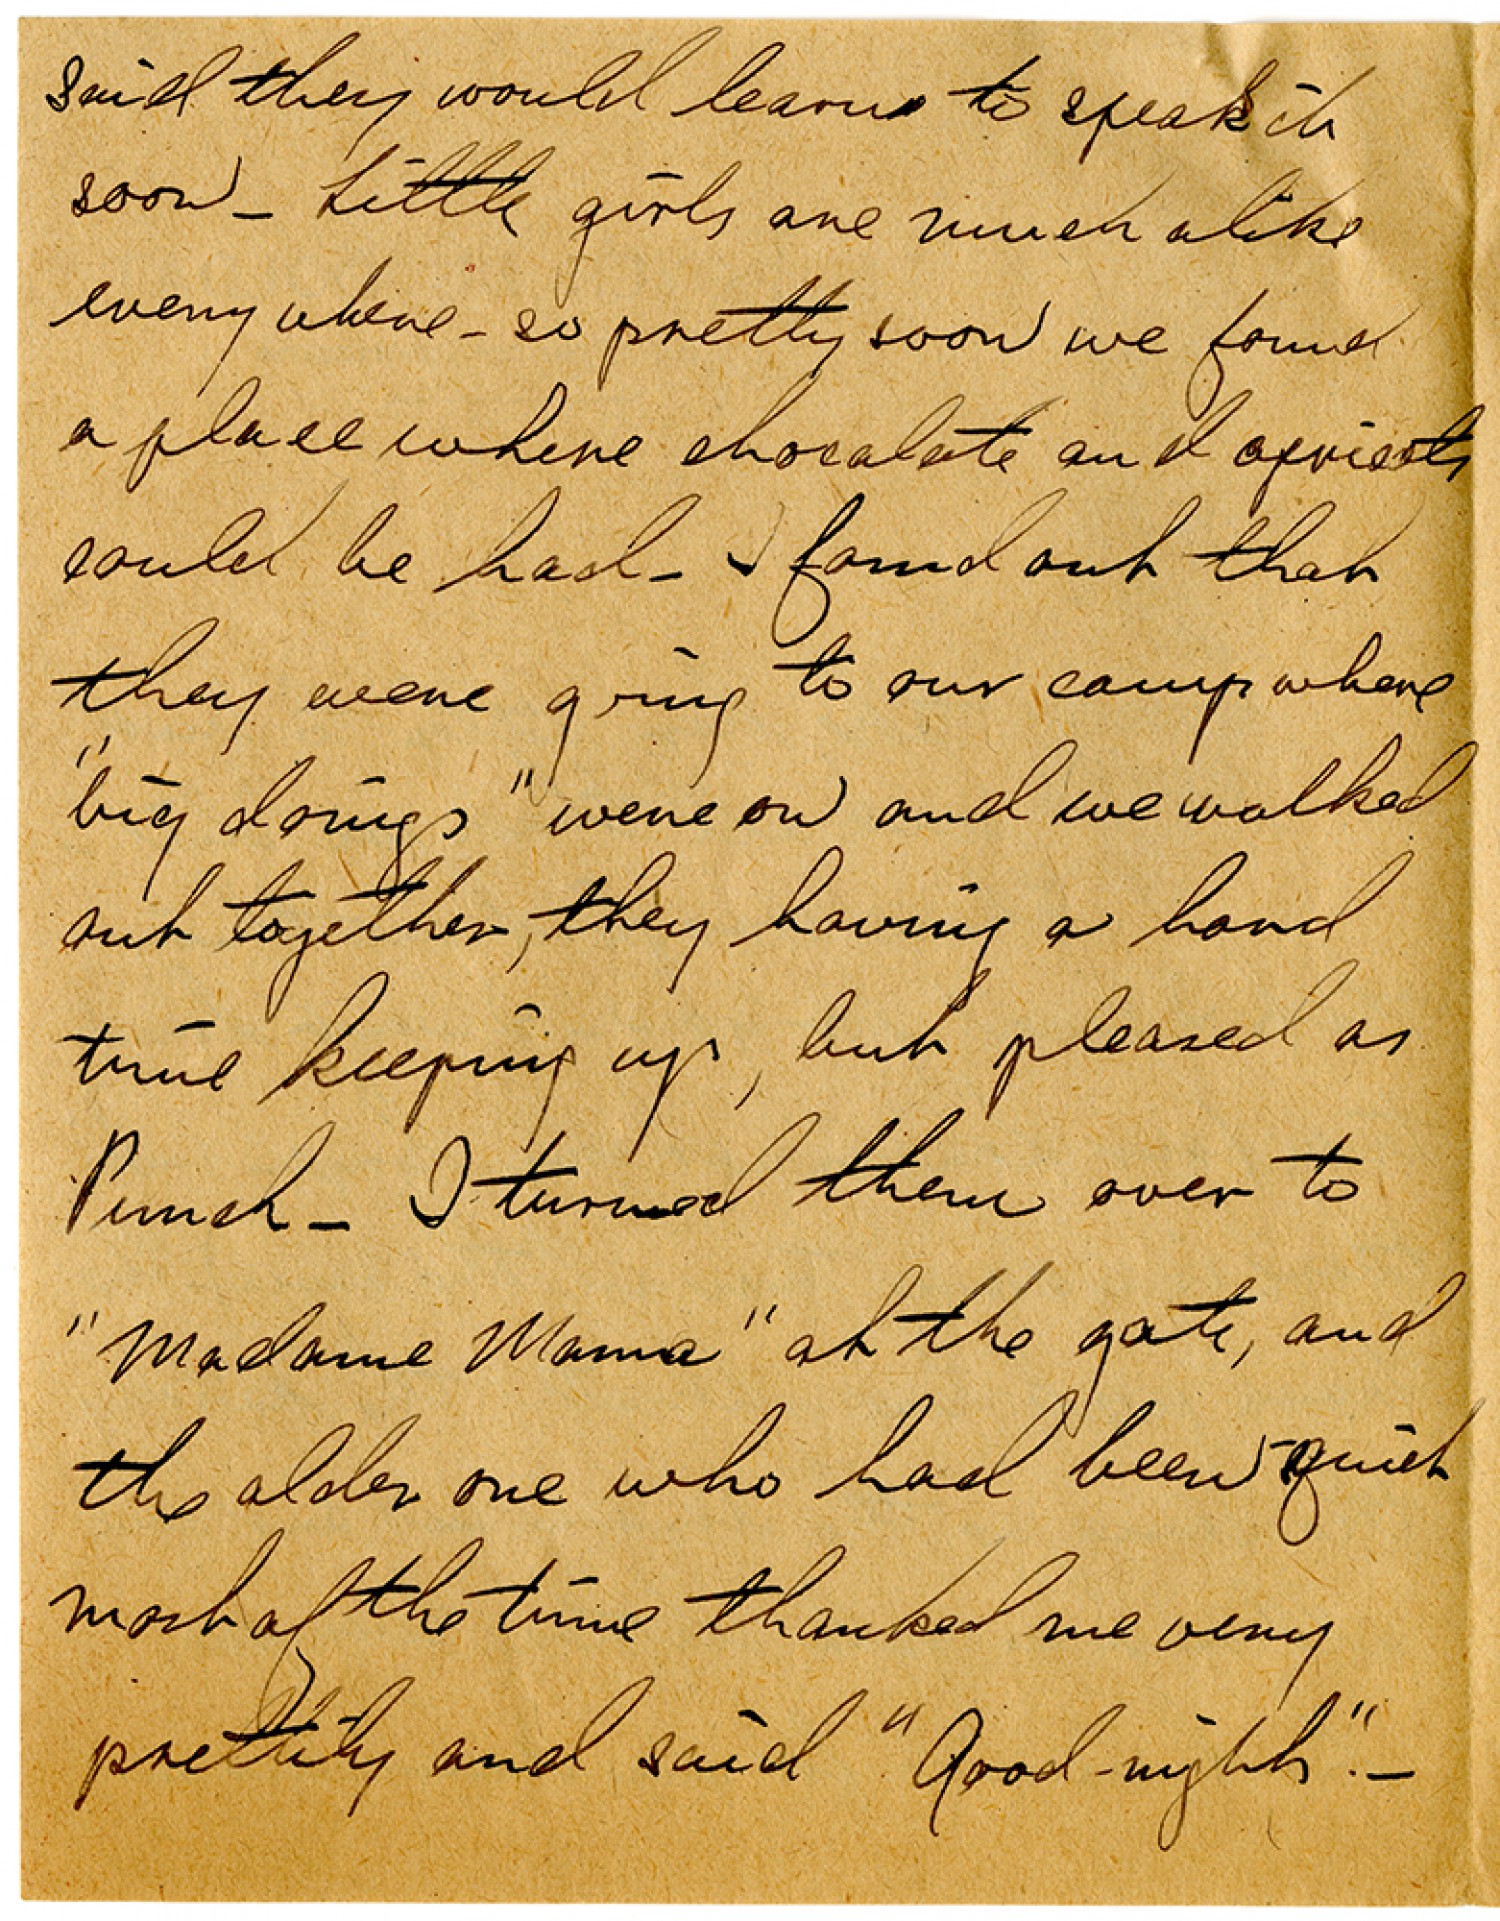 said they would learn to speak it
soon - Little girls are much alike
everywhere - so pretty soon we found
a place where chocolate and apricots
could be had - I found out that
they were going to our camp where
"big doings" were on and we walked
out together, they having a hard
time keeping up, but pleased as
Punch - I turned them over to
"Madame Mama" at the gate, and
the older one who had been quiet
most of the time thanked me very
prettily and said "Good-night". -